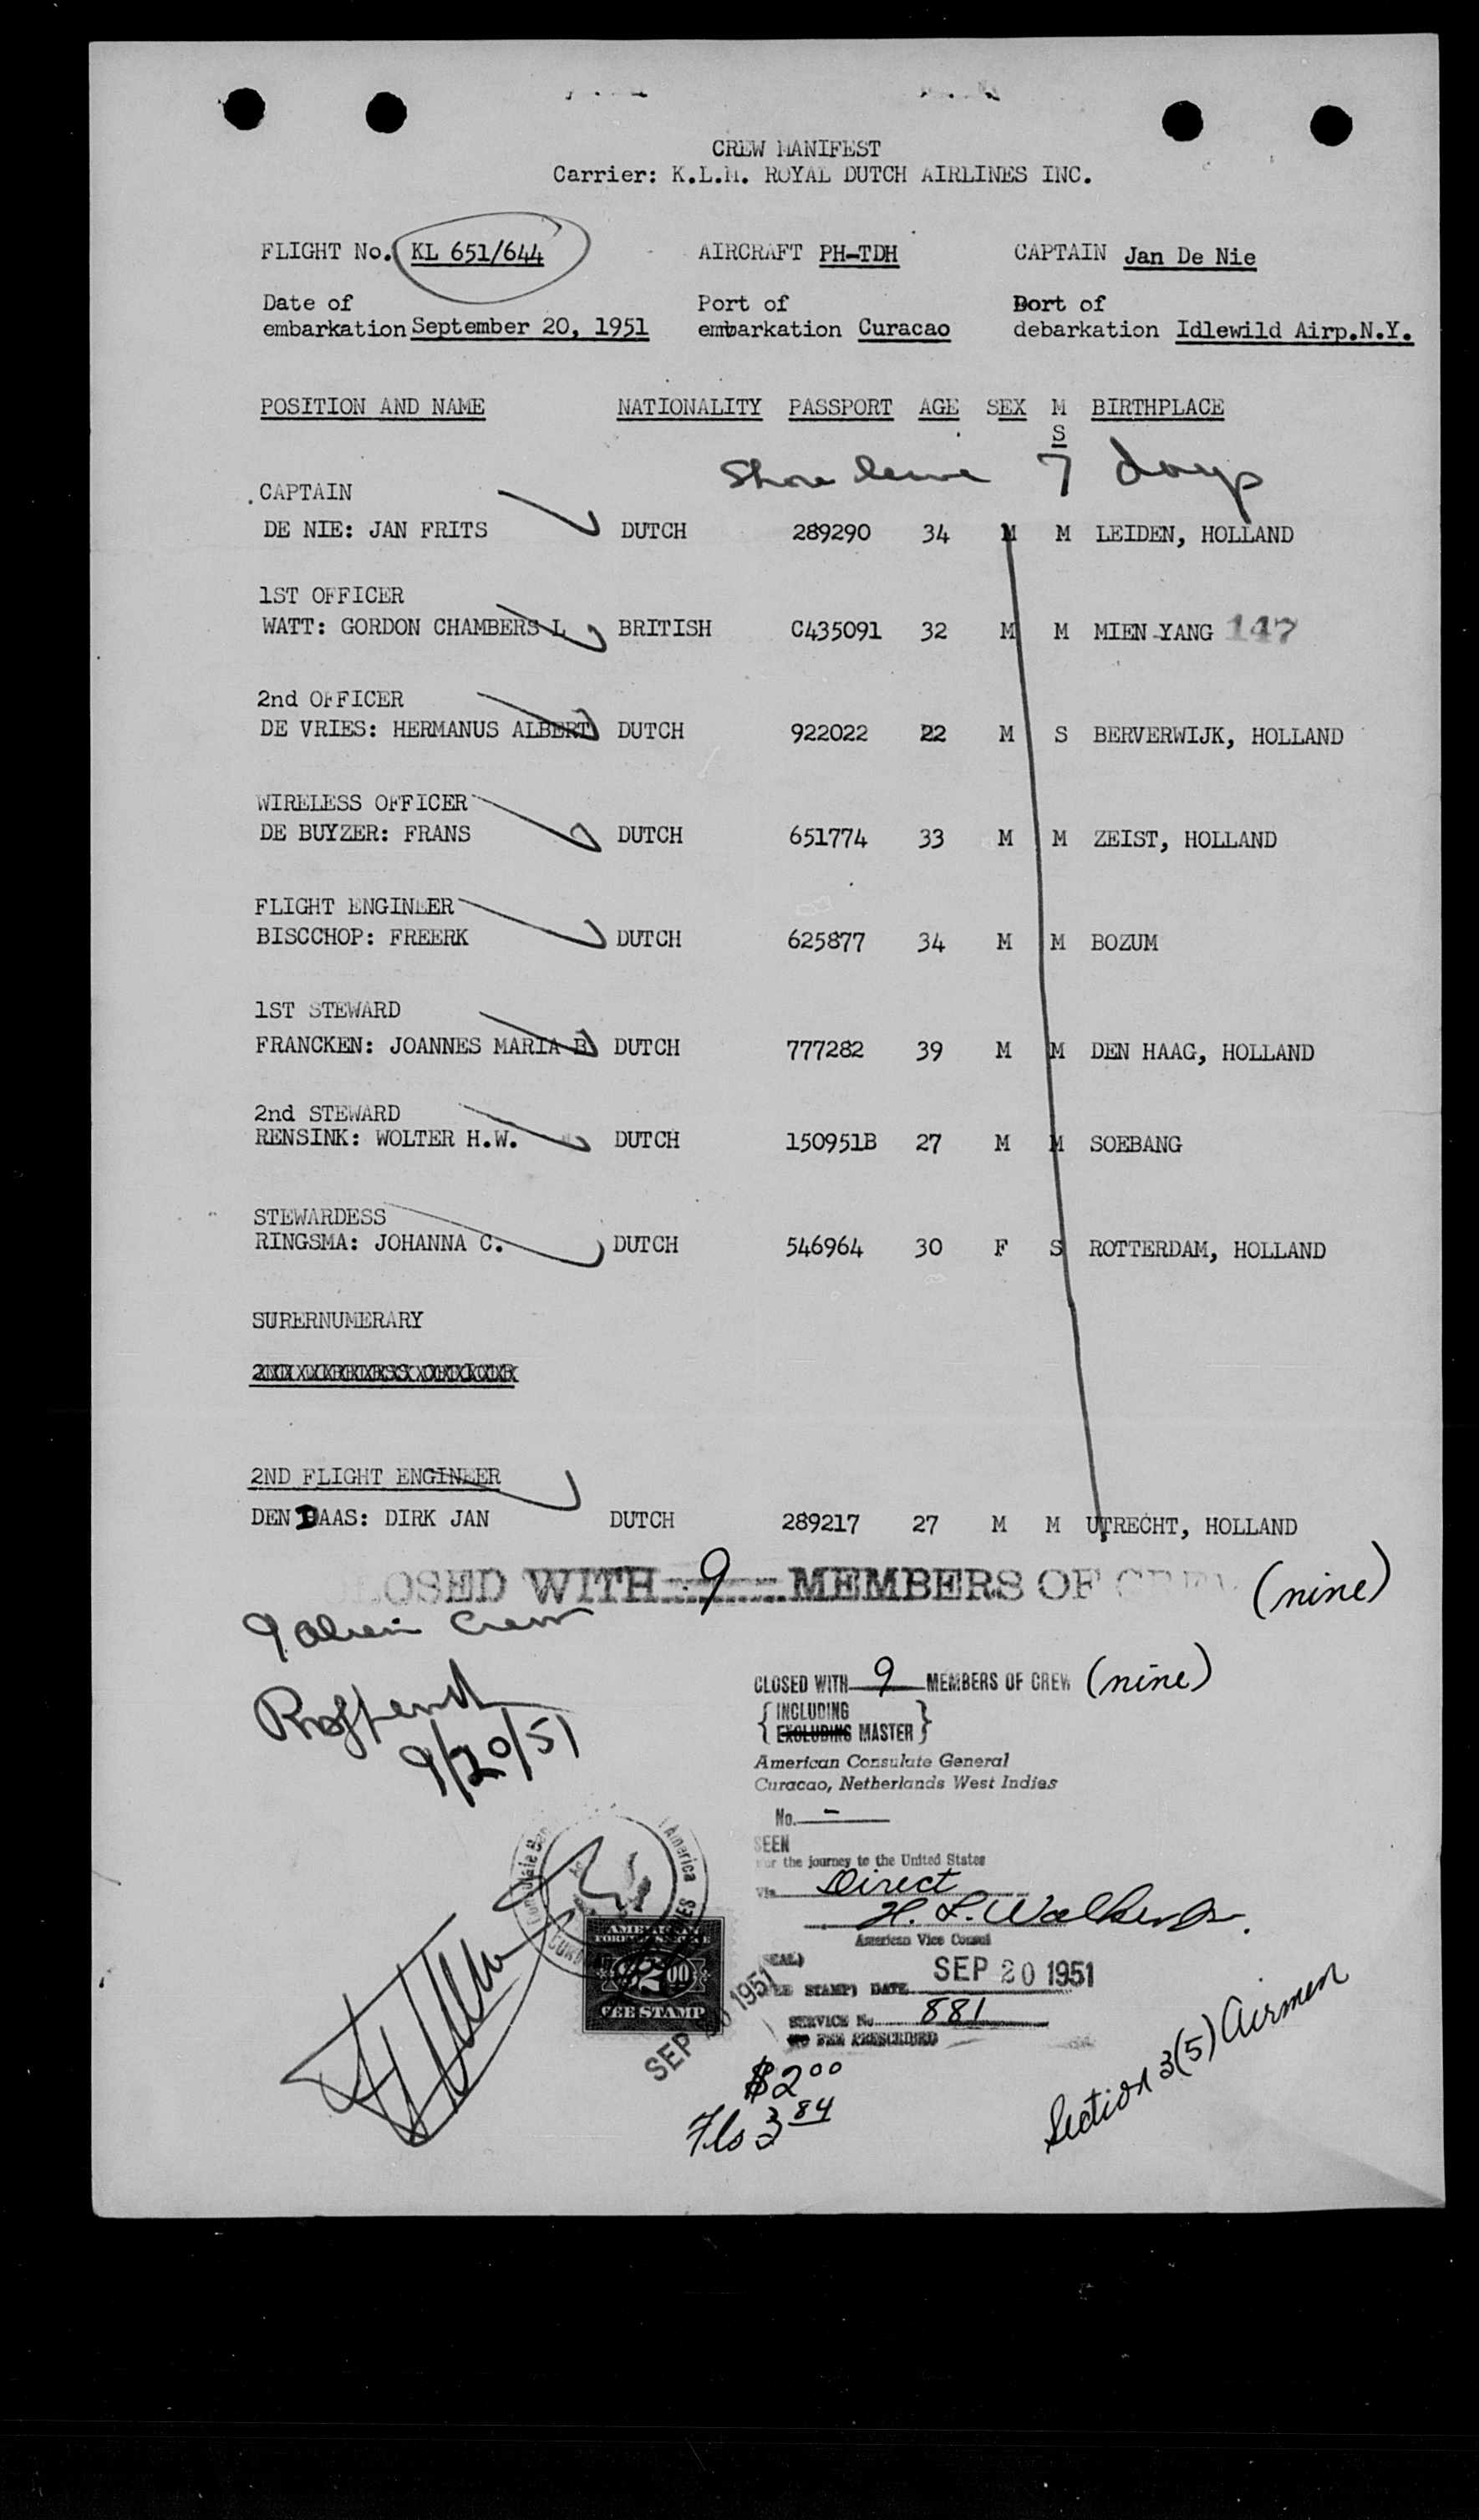 CREW MANIFEST
Carrier: K.L.M. ROYAL DUTCH AIRLINES INC.
FLIGHT No. KL 651/644 AIRCRAFT PH-TDH CAPTAIN Jan De Nie
Date of Port of Port of
embarkation September 20, 1951 embarkation Curacao debarkation Idlewild Airp.N.Y.
POSITION AND NAME NATIONALITY PASSPORT AGE SEX M BIRTHPLACE
S
Shore leave 7 days
CAPTAIN
DE NIE: JAN FRITS DUTCH 289290 34 M M LEIDEN, HOLLAND
1ST OFFICER
WATT: GORDON CHAMBERS L BRITISH C435091 32 M M MIEN YANG 147
2nd OFFICER
DE VRIES: HERMANUS ALBERT DUTCH 922022 22 M S BERVERWIJK, HOLLAND
WIRELESS OFFICER
DE BUYZER: FRANS DUTCH 651774 33 M M ZEIST, HOLLAND
FLIGHT ENGINEER
BISCCHOP: FREERK DUTCH 625877 34 M M BOZUM
1ST STEWARD
FRANCKEN: JOANNES MARIA B DUTCH 777282 39 M M DEN HAAG, HOLLAND
2nd STEWARD
RENSINK: WOLTER H.W. DUTCH 150951B 27 M M SOEBANG
STEWARDESS
RINGSMA: JOHANNA C. DUTCH 546964 30 F S ROTTERDAM, HOLLAND
SURERNUMERARY
2ND FLIGHT ENGINEER
DEN DAAS: DIRK JAN DUTCH 289217 27 M M UTRECHT, HOLLAND
CLOSED WITH 9 MEMBERS OF CREW (nine)
9 alien crew
9/20/51
CLOSED WITH 9 MEMBERS OF CREW (nine)
INCLUDING
EXCLUDING MASTER
American Consulate General
Curacao, Netherlands West Indies
No. -
SEEN
For the journey to the United States
Via Direct
H. L. Walker Jr.
American Vice Consul
(SEAL)
(FEE STAMP) DATE SEP 20 1951
SERVICE No. 881
NO FEE PRESCRIBED
AMERICAN
FOREIGN SERVICE
$2.00
FEE STAMP
SEP 20 1951
$2.00
Fls 3.84
Section 3(5) Airmen